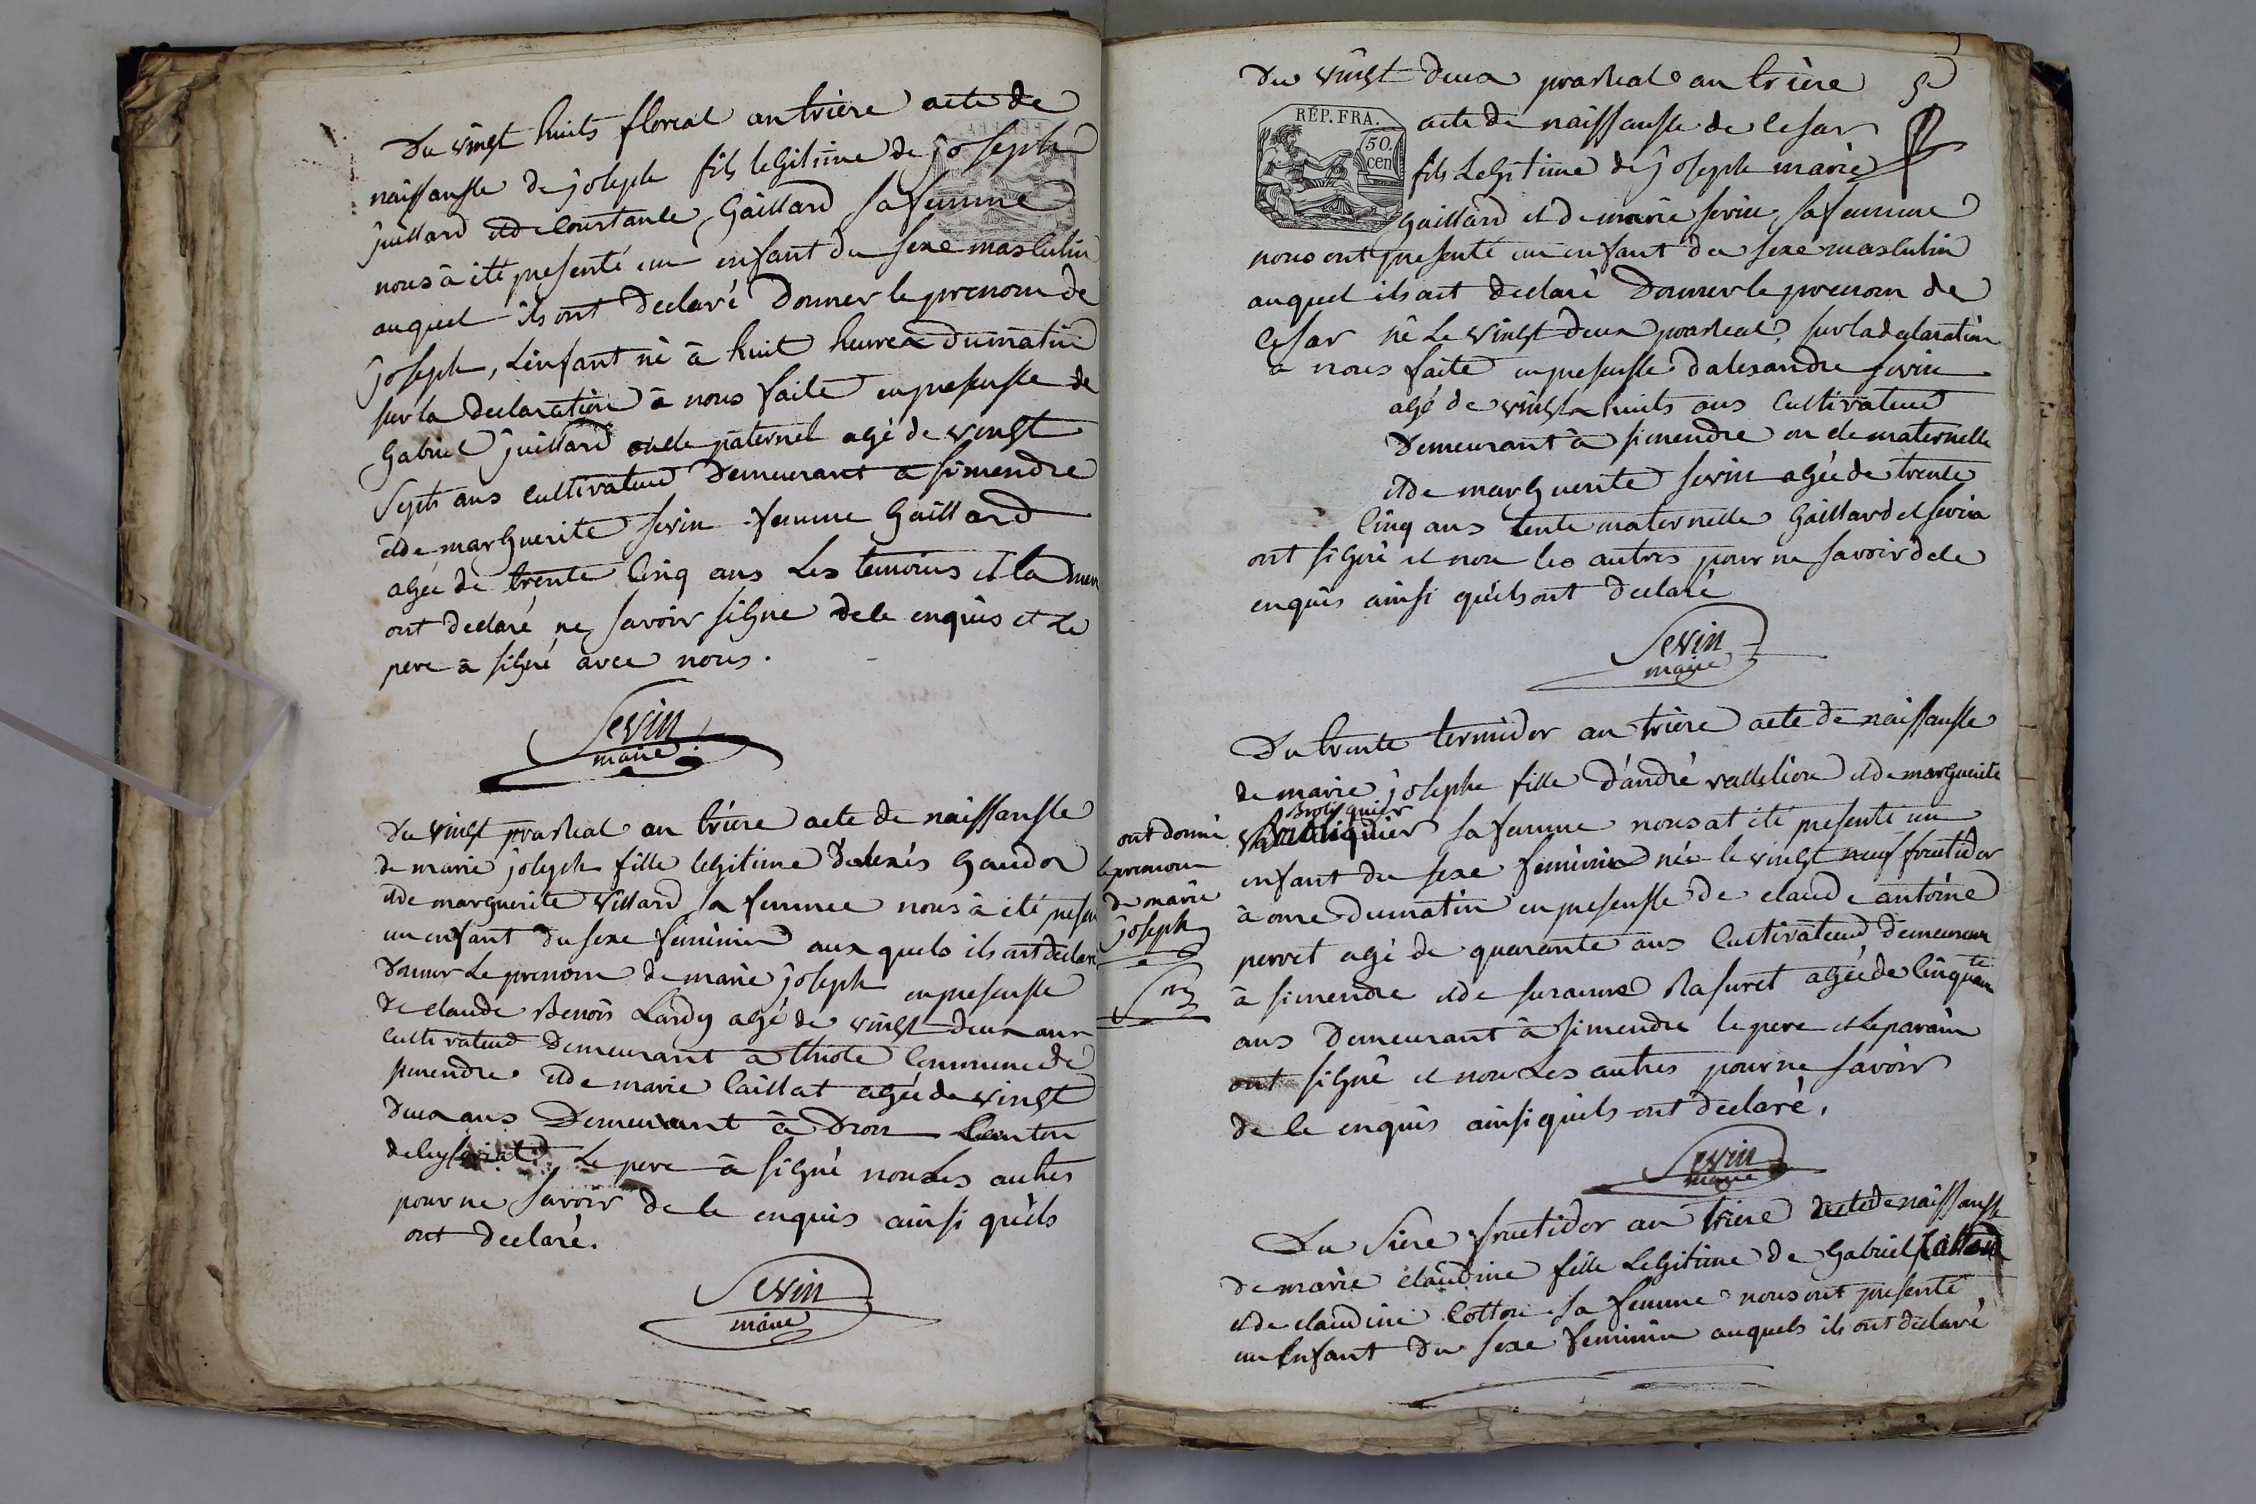 Du vingt huits floreal an trière acte de
naissansse de joseph fils legitime de joseph
juillard et de Constanse Gaillard sa femme
nous à été presenté un enfant du sexe masculin
auquel ils ont declaré donner le prenom de
joseph, l'enfant né à huit heures du matin
sur la declaration à nous faite en presensse de
Gabriel juillard oncle paternel agé de vingt
septs ans cultivateur demeurant a simendre
et de marguerite sevin femme Gaillard
agée de trente cinq ans les temoins et la mere
ont declaré ne savoir signe de ce enquis et le
pere à signé avec nous.
Sevin
maire
Du vingt prasreal an trière acte de naissansse
de marie joseph fille legitime dalexis Gaudon
et de marguerite Villard sa femme nous à été presen
un enfant du sexe feminin aux quels ils ont declaré
donner le prenom de marie joseph en presensse
de claude Benois Lardy agé de vingt deux ans
cultivateur demeurant à thiole Commune de
simendre et de marie Caillat agée de vingt
deux ans demeurant à Drom Canton
de Ceyseriat Le pere à signé non les autres
pour ne savoir de ce enquis ainsi quels
ont declaré.
Sevin
maire
Du vingt deux prasreal an trière
RÉP. FRA.
50.
cen
acte de naissansse de Cesar
fils Legitime de joseph marie
Gaillard et de marie sevin sa femme
nous ont presenté un enfant du sexe masculin
auquel ils ont declaré donner le prenom de
Cesar né Le vingt deux prasreal, sur la declaration
à nous faite en presensse d'alexandre sevin
agé de vingt huits ans Cultivateur
demeurant à simendre oncle maternelle
et de marguerite sevin agée de trente
cinq ans tente maternelle Gaillard et sevin
ont signé et non les autres pour ne savoir de ce
enquis ainsi quels ont declaré
Sevin
maire
Du trente termidor an trière acte de naissansse
de marie josephe fille d'andré vallelion et de marguerite
Brolyquier
sa femme nous at été presenté un
enfant du sexe feminin née le vingt neuf fructidor
à onze du matin en presensse de claude antoine
perret agé de quarante ans Cultivateur demeurent
à simendre et de suzanne Rasuret agée de Cinquante
ans demeurant à simendre le pere et le parain
ont signé et non Les autres pour ne savoir
de ce enquis ainsi quils ont declaré.
ont donné
le prenom
de marie
joseph
Sevin
maire
Du sière fructidor an trière acte de naissansse
de marie claudine fille Legitime de Gabriel
et de claudine Cotton sa femme nous ont presenté
un Enfant du sexe feminin auquels ils ont declaré